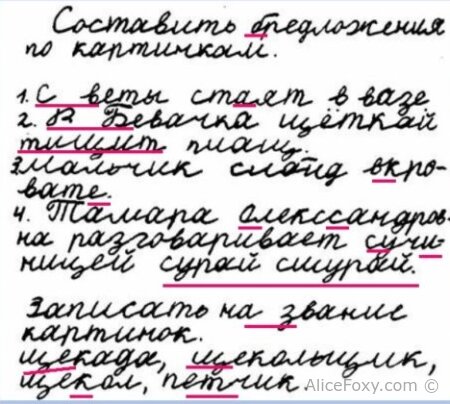 Составить бредложения
по картичкам.
1. С веты стаят в вазе
2. В Бевачка щёткай
тишит плащ.
3 мальчик слаид окро-
вате.
4. Тамара Олекссандров-
на разговаривает сучи-
ницей сурай шурай.
Записать на звание
картинок.
щекада, щекольщик,
щекол, петчик.
AliceFoxy.com ©